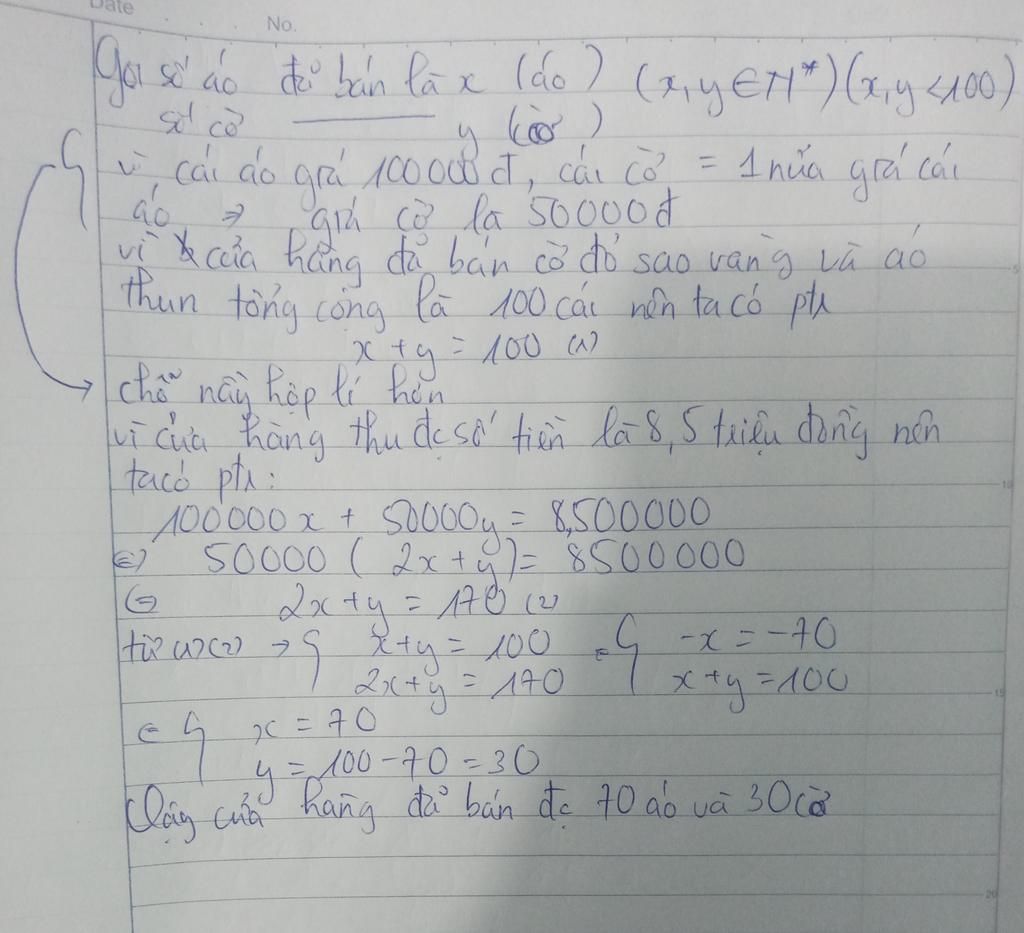 Date No.
Gọi số áo đã bán là x (áo) (x,y ∈ N*) (x,y < 100)
số cờ ——— y (cờ)
vì cái áo giá 100000đ, cái cờ = 1 nửa giá cái
áo => giá cờ là 50000đ
vì cửa hàng đã bán cờ đỏ sao vàng và áo
thun tổng cộng là 100 cái nên ta có pt
x + y = 100 (1)
chỗ này hợp lí hơn
vì cửa hàng thu đc số tiền là 8,5 triệu đồng nên
ta có pt:
100000x + 50000y = 8,500000
(=) 50000 ( 2x + y ) = 8500000
(=) 2x + y = 170 (2)
từ (1) (2) → { x + y = 100 = { -x = -70
2x + y = 170 x + y = 100
= { x = 70
y = 100 - 70 = 30
Vậy cửa hàng đã bán đc 70 áo và 30 cờ